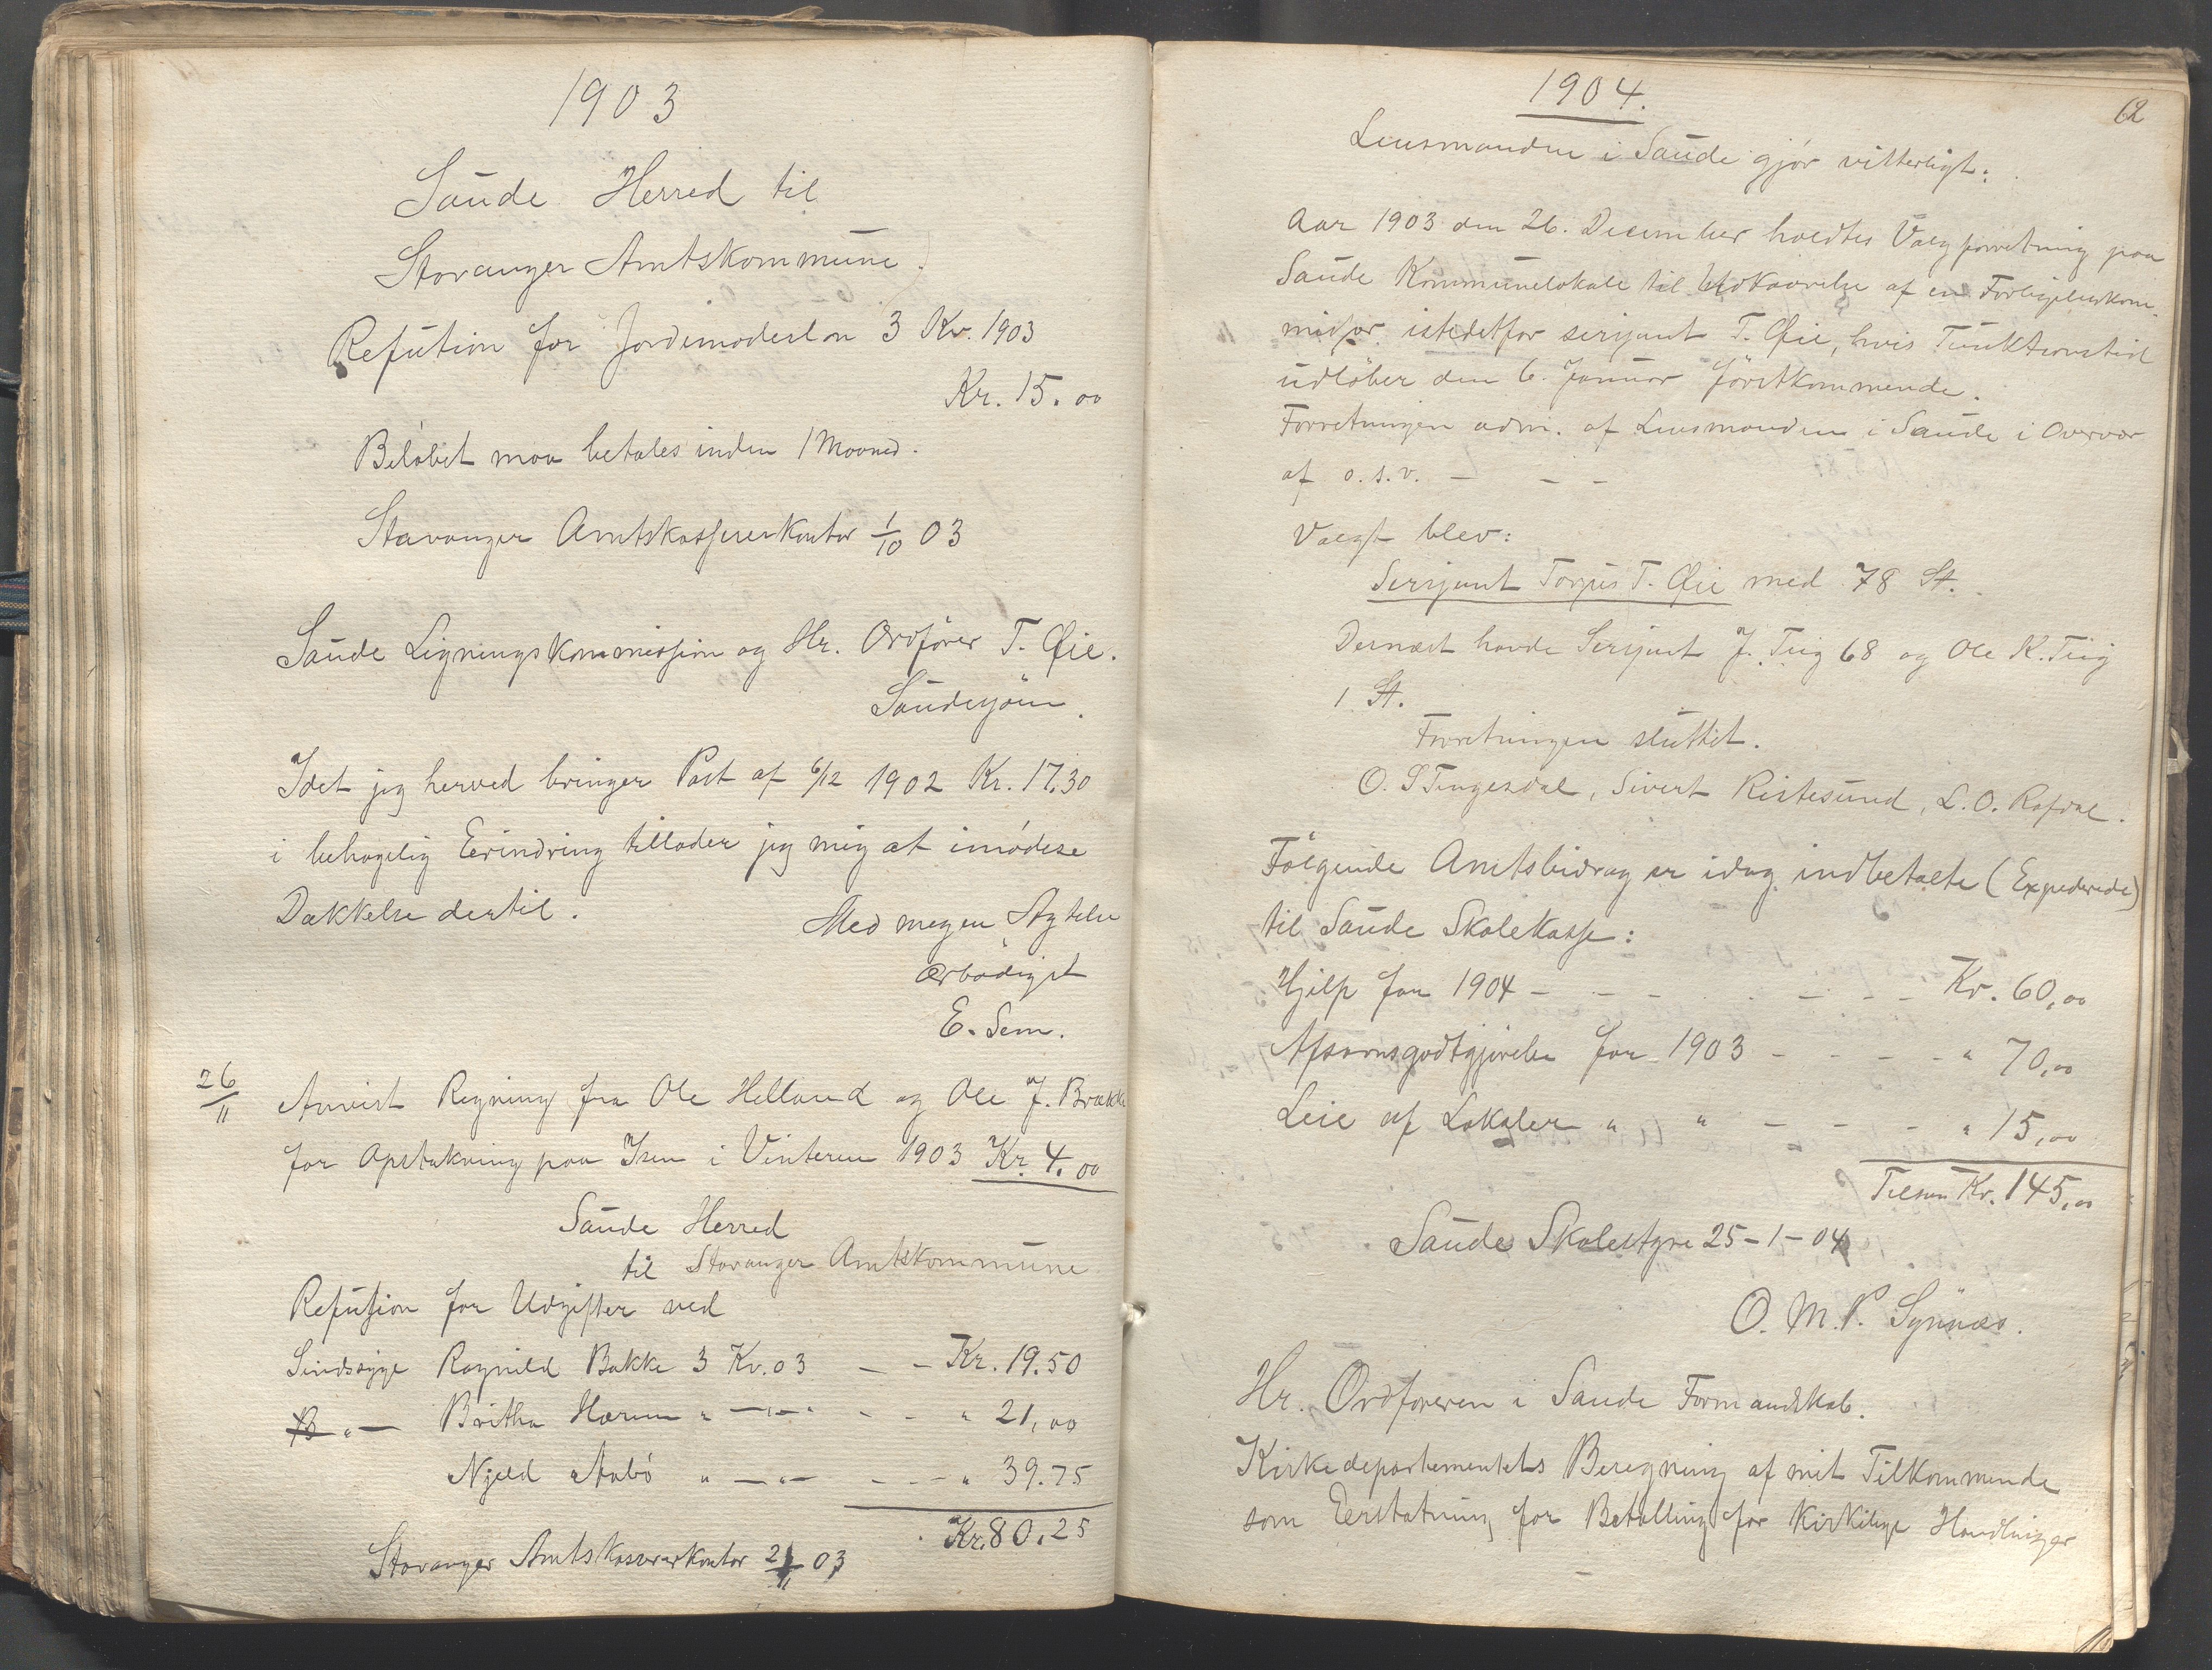 1903
Saude Herred til
Stavanger Amtskommune.
Refution for Jordemoderløn 3 Kv. 1903
Kr. 15.00
Beløbet maa betales inden 1 Maaned.
Stavanger Amtskasserer kontor 1/10 03
Saude Ligningskommission og Hr. Ordfører T. Øie.
Saudesjøen.
Idet jeg herved bringer Post af 6/12 1902 Kr. 17.30
i behagelig Erindring tillader jeg mig at imødese
Dækkelse dertil.
Med megen Agtelse
Ærbødigst
E. Sem.
26/11 Anvist Regning fra Ole Helland og Ole J. Brække
for Opstakning paa Isen i Vinteren 1903 Kr. 4.00
Saude Herred
til Stavanger Amtskommune
Refusion for Udgifter ved
Sindssyge Ragnild Bakke 3 Kv. 03 — - Kr. 19.50
" — Britha Harum " —"— " - - " 21,00
Njeld Aabø " —"— - - " 39.75
Kr. 80.25
Stavanger Amtskassererkontor 21/11 03
1904.
62
Lensmanden i Saude gjør vitterligt:
Aar 1903 den 26. December holdtes Valgforretning paa
Saude Kommunelokale til Udkaarelse af en Forligelseskom-
missær istedetfor serjant T. Øie, hvis Funktionstid
udløber den 6. Januar førstkommende.
Forretningen adm. af Lensmanden i Saude i Overvær
af o.s.v. — - -
Valgt blev:
Serjant Torjus T. Øie med 78 St.
Dernæst havde Serjant J. Teig 68 og Ole K. Teig
1 St.
Forretningen sluttet.
O. S Tengesdal, Sivert Ristesund, L. O. Rafdal.
Følgende Amtsbidrag er idag indbetalte (Expederede)
til Saude Skolekasse:
Hjælp for 1904 - - - - - - Kr. 60,00
Afsavnsgodtgjørelse for 1903 - - - - " 70,00
Leie af Lokaler " " - - - " 15,00
Tilsam Kr. 145,00
Saude Skolestyre 25-1-04
O. M. P. Synnæs.
Hr. Ordføreren i Saude Formandskab.
Kirkedepartementets Beregning af mit Tilkommende
som Erstatning for Betalling for kirkelige Handlinger